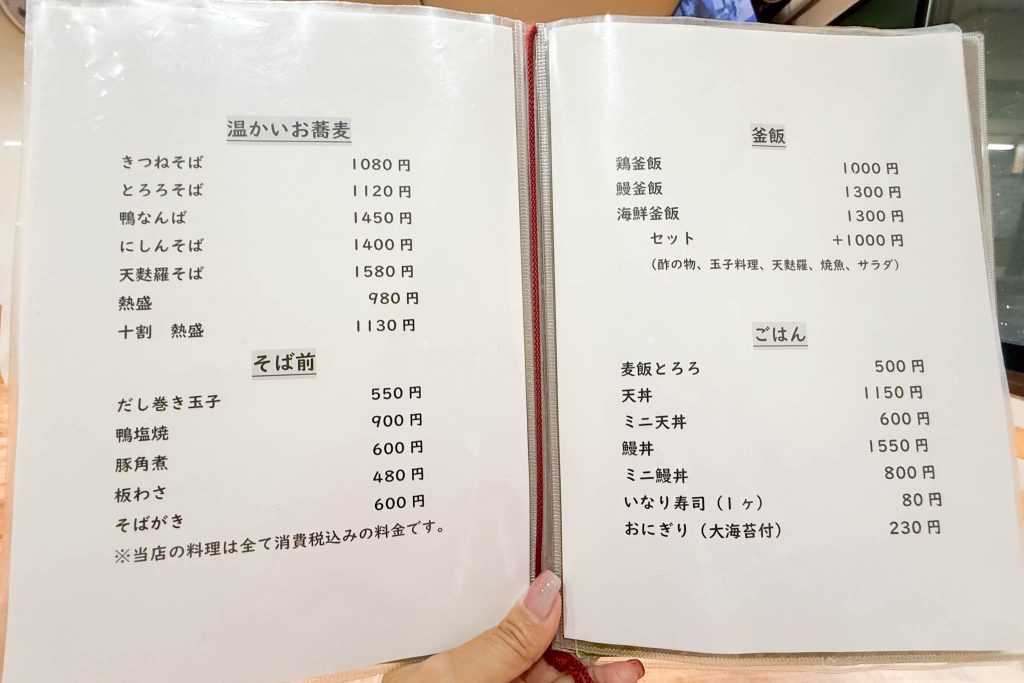 温かいお蕎麦
きつねそば 1080円
とろろそば 1120円
鴨なんば 1450円
にしんそば 1400円
天麩羅そば 1580円
熱盛 980円
十割 熱盛 1130円
そば前
だし巻き玉子 550円
鴨塩焼 900円
豚角煮 600円
板わさ 480円
そばがき 600円
※当店の料理は全て消費税込みの料金です。
釜飯
鶏釜飯 1000円
鰻釜飯 1300円
海鮮釜飯 1300円
セット +1000円
（酢の物、玉子料理、天麩羅、焼魚、サラダ）
ごはん
麦飯とろろ 500円
天丼 1150円
ミニ天丼 600円
鰻丼 1550円
ミニ鰻丼 800円
いなり寿司（1ヶ） 80円
おにぎり（大海苔付） 230円